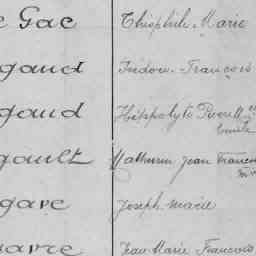 e Gac Théophile Marie
gaud Isidore - François
gaud Hippolyte
Emile
gault Mathurin Jean Francois
gave Joseph Marie
gavre Jean Marie - Francois